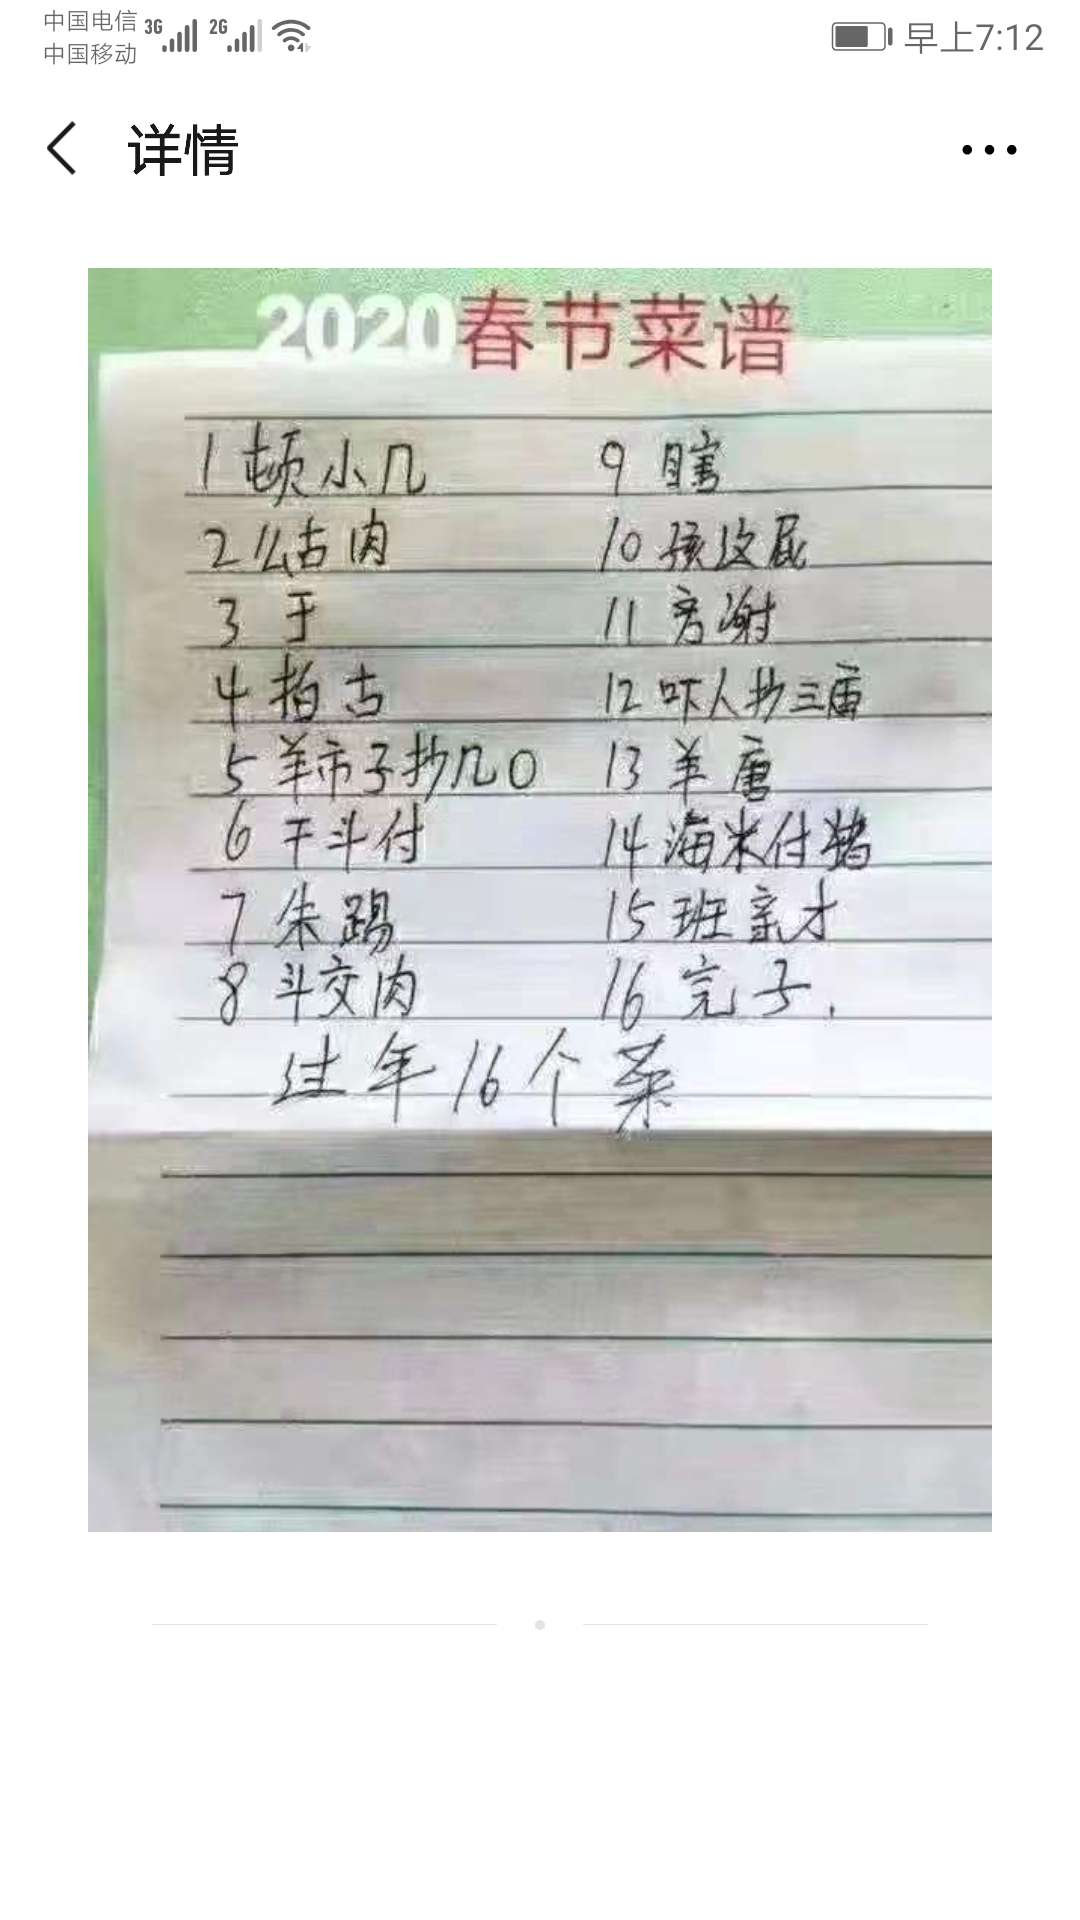 中国电信 3G 2G
中国移动
早上7:12
详情
2020春节菜谱
1 顿小几
2 么古肉
3 于
4 拍古
5 羊市子抄几0
6 干斗付
7 朱踢
8 斗交肉
9 瞎
10 孩这屁
11 旁谢
12 吓人抄三庙
13 羊唐
14 海米付猪
15 班亲才
16 完子.
过年16个菜